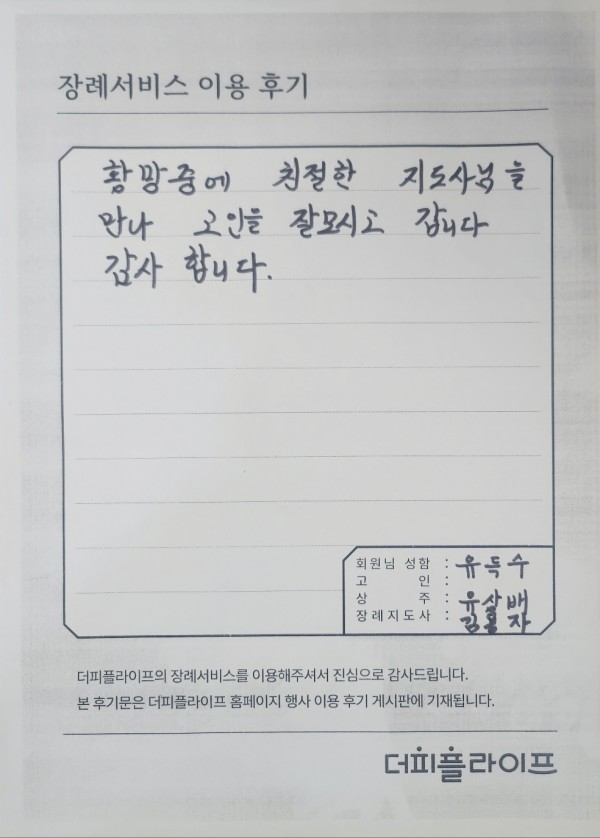 장례서비스 이용 후기
황망중에 친절한 지도사님을
만나 고인을 잘모시고 갑니다
감사 합니다.
회원님 성함 : 유득수
고 인 :
상 주 : 유상배
장례지도사 : 김홍자
더피플라이프의 장례서비스를 이용해주셔서 진심으로 감사드립니다.
본 후기문은 더피플라이프 홈페이지 행사 이용 후기 게시판에 기재됩니다.
더피플라이프